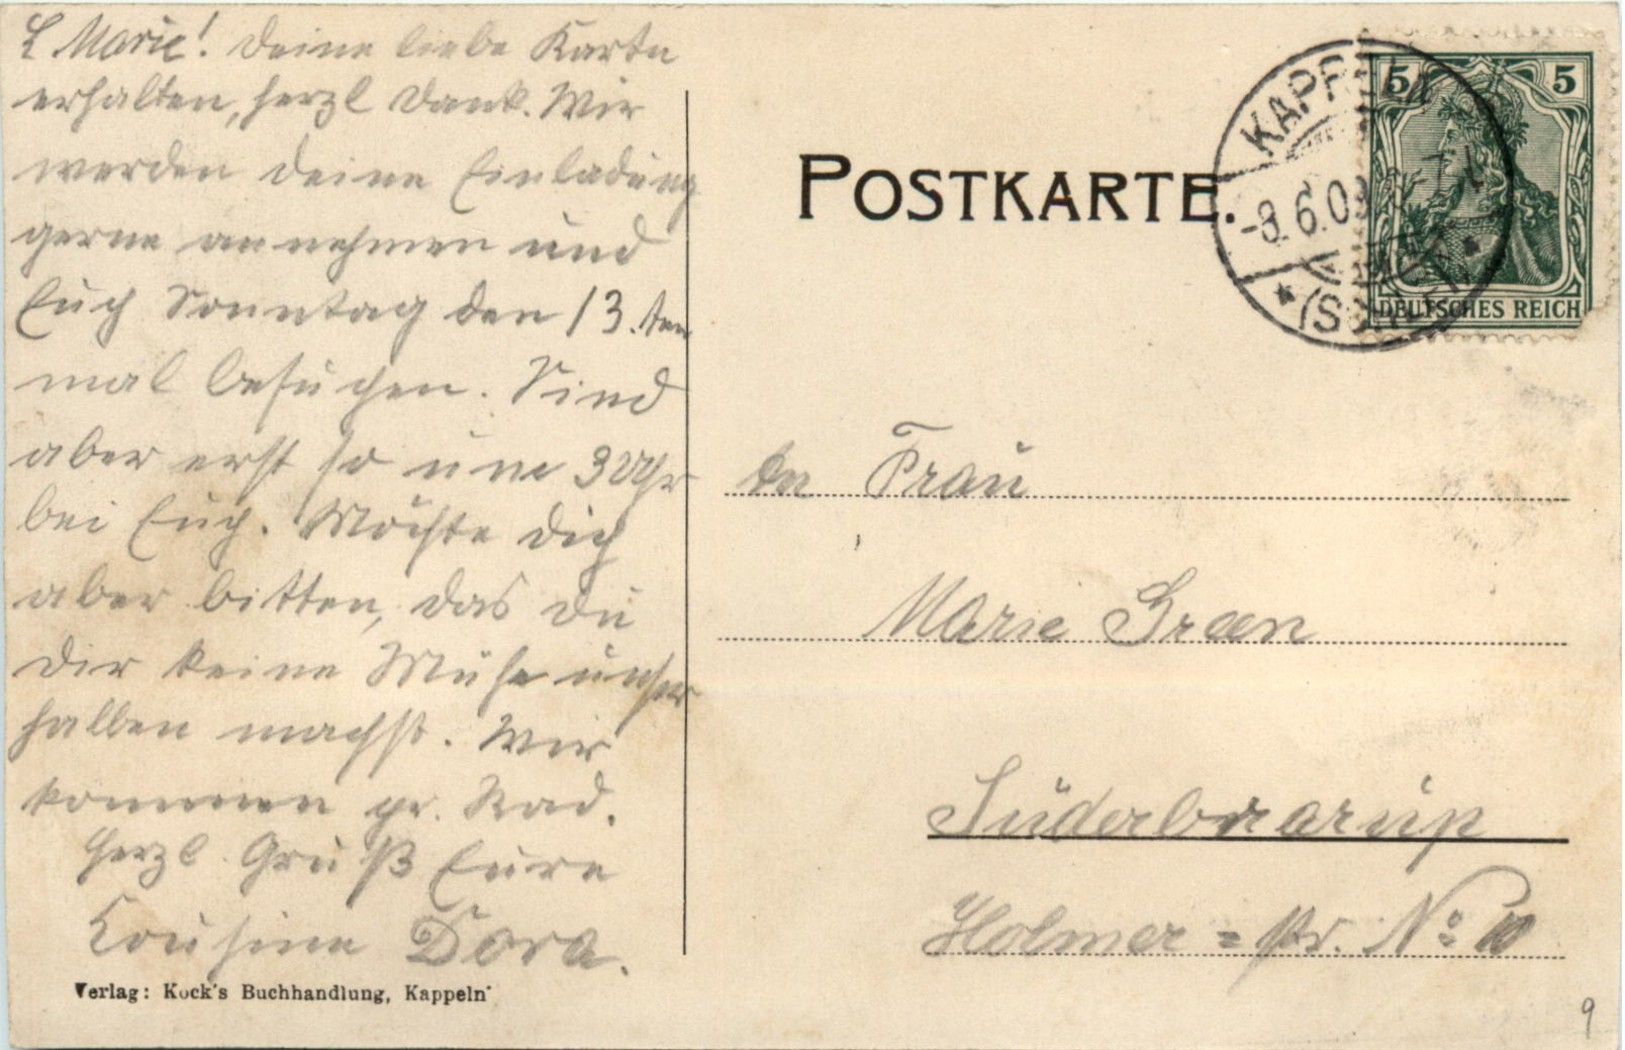 L Marie! Deine liebe Karte
erhalten, herzl Dank. Wir
werden deine Einladung
gerne annehmen und
Euch Sonntag den 13.ten
mal besuchen. Sind
aber erst so um 3 Uhr
bei Euch. Möchte dich
aber bitten, das du
dir keine Mühe unser
halben machst. Wir
kommen pr. Rad.
Herzl. Gruß Eure
Cousine Dora.
Verlag: Kock's Buchhandlung, Kappeln
POSTKARTE.
KAPPELN
-9.6.09
5 5
DEUTSCHES REICH
An Frau
Marie Green
Süderbrarup
Holmer=str. No 10
9